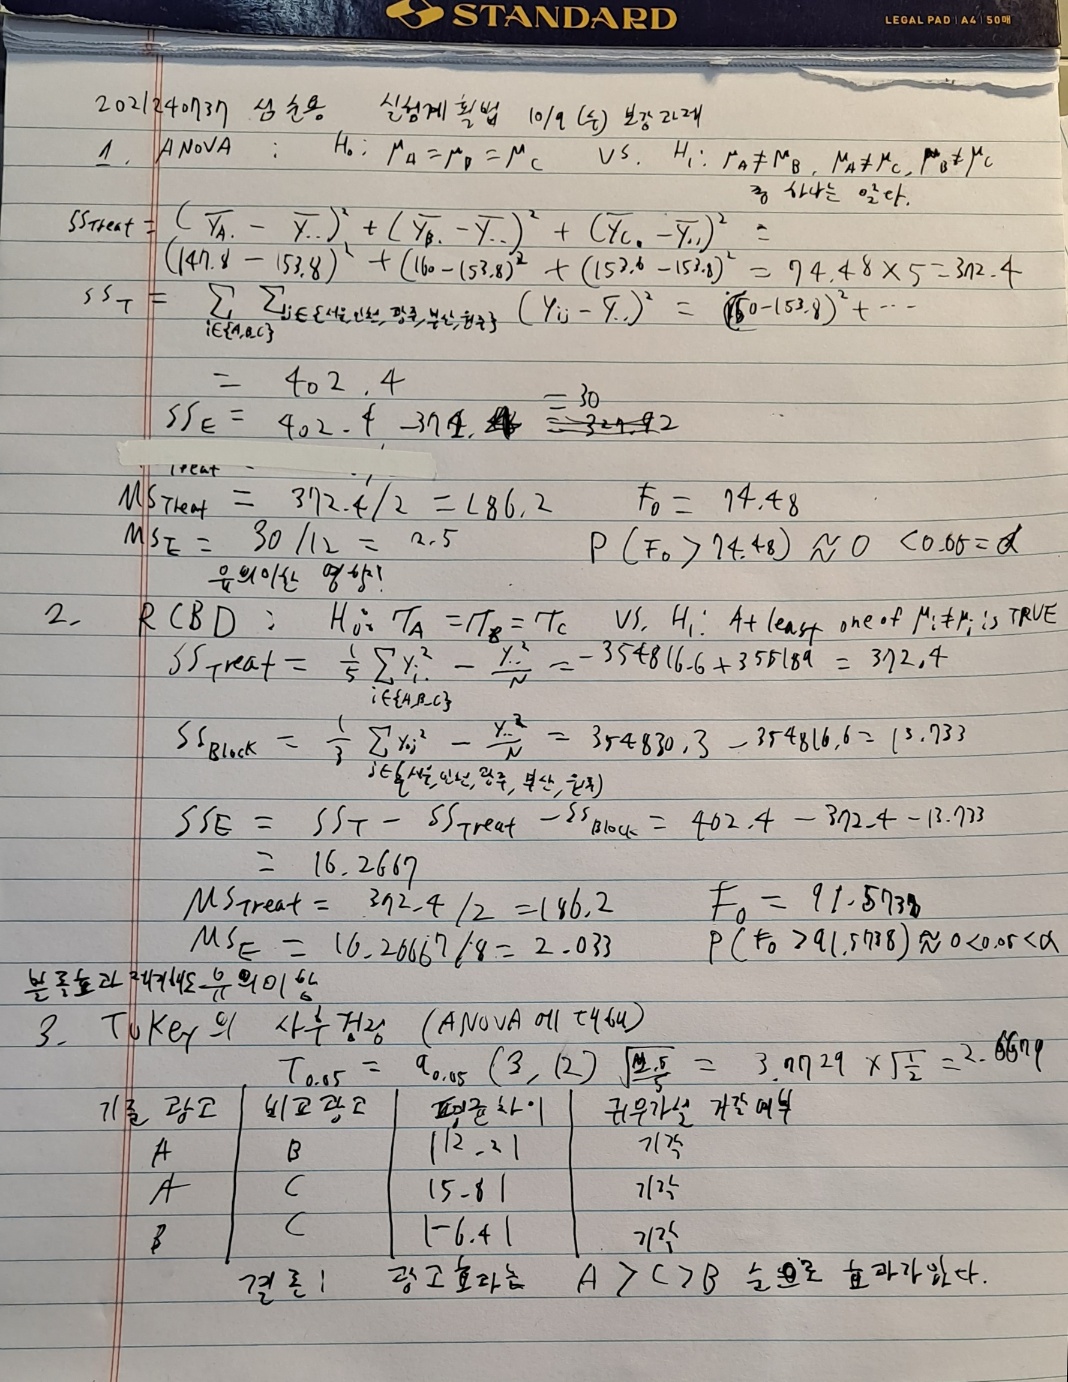 STANDARD
LEGAL PAD | A4 | 50매
실험계획법 10/9 (수) 보강과제
1. ANOVA : H₀: μA = μB = μC VS. H₁: μA ≠ μB, μA ≠ μC, μB ≠ μC
중 하나는 있다.
SSTreat = (ȲA. - Ȳ..)² + (ȲB. - Ȳ..)² + (ȲC. - Ȳ..)² =
(147.8 - 153.8)² + (160 - 153.8)² + (153.6 - 153.8)² = 74.48 × 5 = 372.4
SST = Σ i∈{A,B,C} Σ j∈{서울,인천,광주,부산,원주} (Yij - Ȳ..)² = (150 - 153.8)² + ...
= 402.4
SSE = 402.4 - 372.4 = 30
MSTreat = 372.4/2 = 186.2 F₀ = 74.48
MSE = 30/12 = 2.5 P(F₀ > 74.48) ≈ 0 < 0.05 = α
유의미한 영향!
2. RCBD : H₀: τA = τB = τC VS. H₁: At least one of μi ≠ μj is TRUE
SSTreat = 1/5 Σ i∈{A,B,C} Yi.² - Y..²/N = -354816.6 + 355189 = 372.4
SSBlock = 1/3 Σ j∈{서울,인천,광주,부산,원주} Y.j² - Y..²/N = 354830.3 - 354816.6 = 13.733
SSE = SST - SSTreat - SSBlock = 402.4 - 372.4 - 13.733
= 16.2667
MSTreat = 372.4/2 = 186.2 F₀ = 91.5738
MSE = 16.26667/8 = 2.033 P(F₀ > 91.5738) ≈ 0 < 0.05 < α
블록효과 제거해도 유의미함
3. Tukey의 사후검정 (ANOVA에 대하여)
T0.05 = q0.05 (3, 12) √2.5/5 = 3.7729 × √1/2 = 2.6679
기준 광고 비교광고 평균차이 귀무가설 기각여부
A B |12.2| 기각
A C |5.8| 기각
B C |-6.4| 기각
결론! 광고효과는 A > C > B 순으로 효과가 있다.